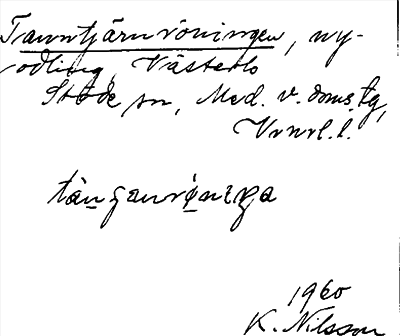 Tanntjärnröningen, ny-
odling, Västerlo
Stöde sn, Med. v. doms. tg,
Vrnrl. l.
1960
K. Nilsson